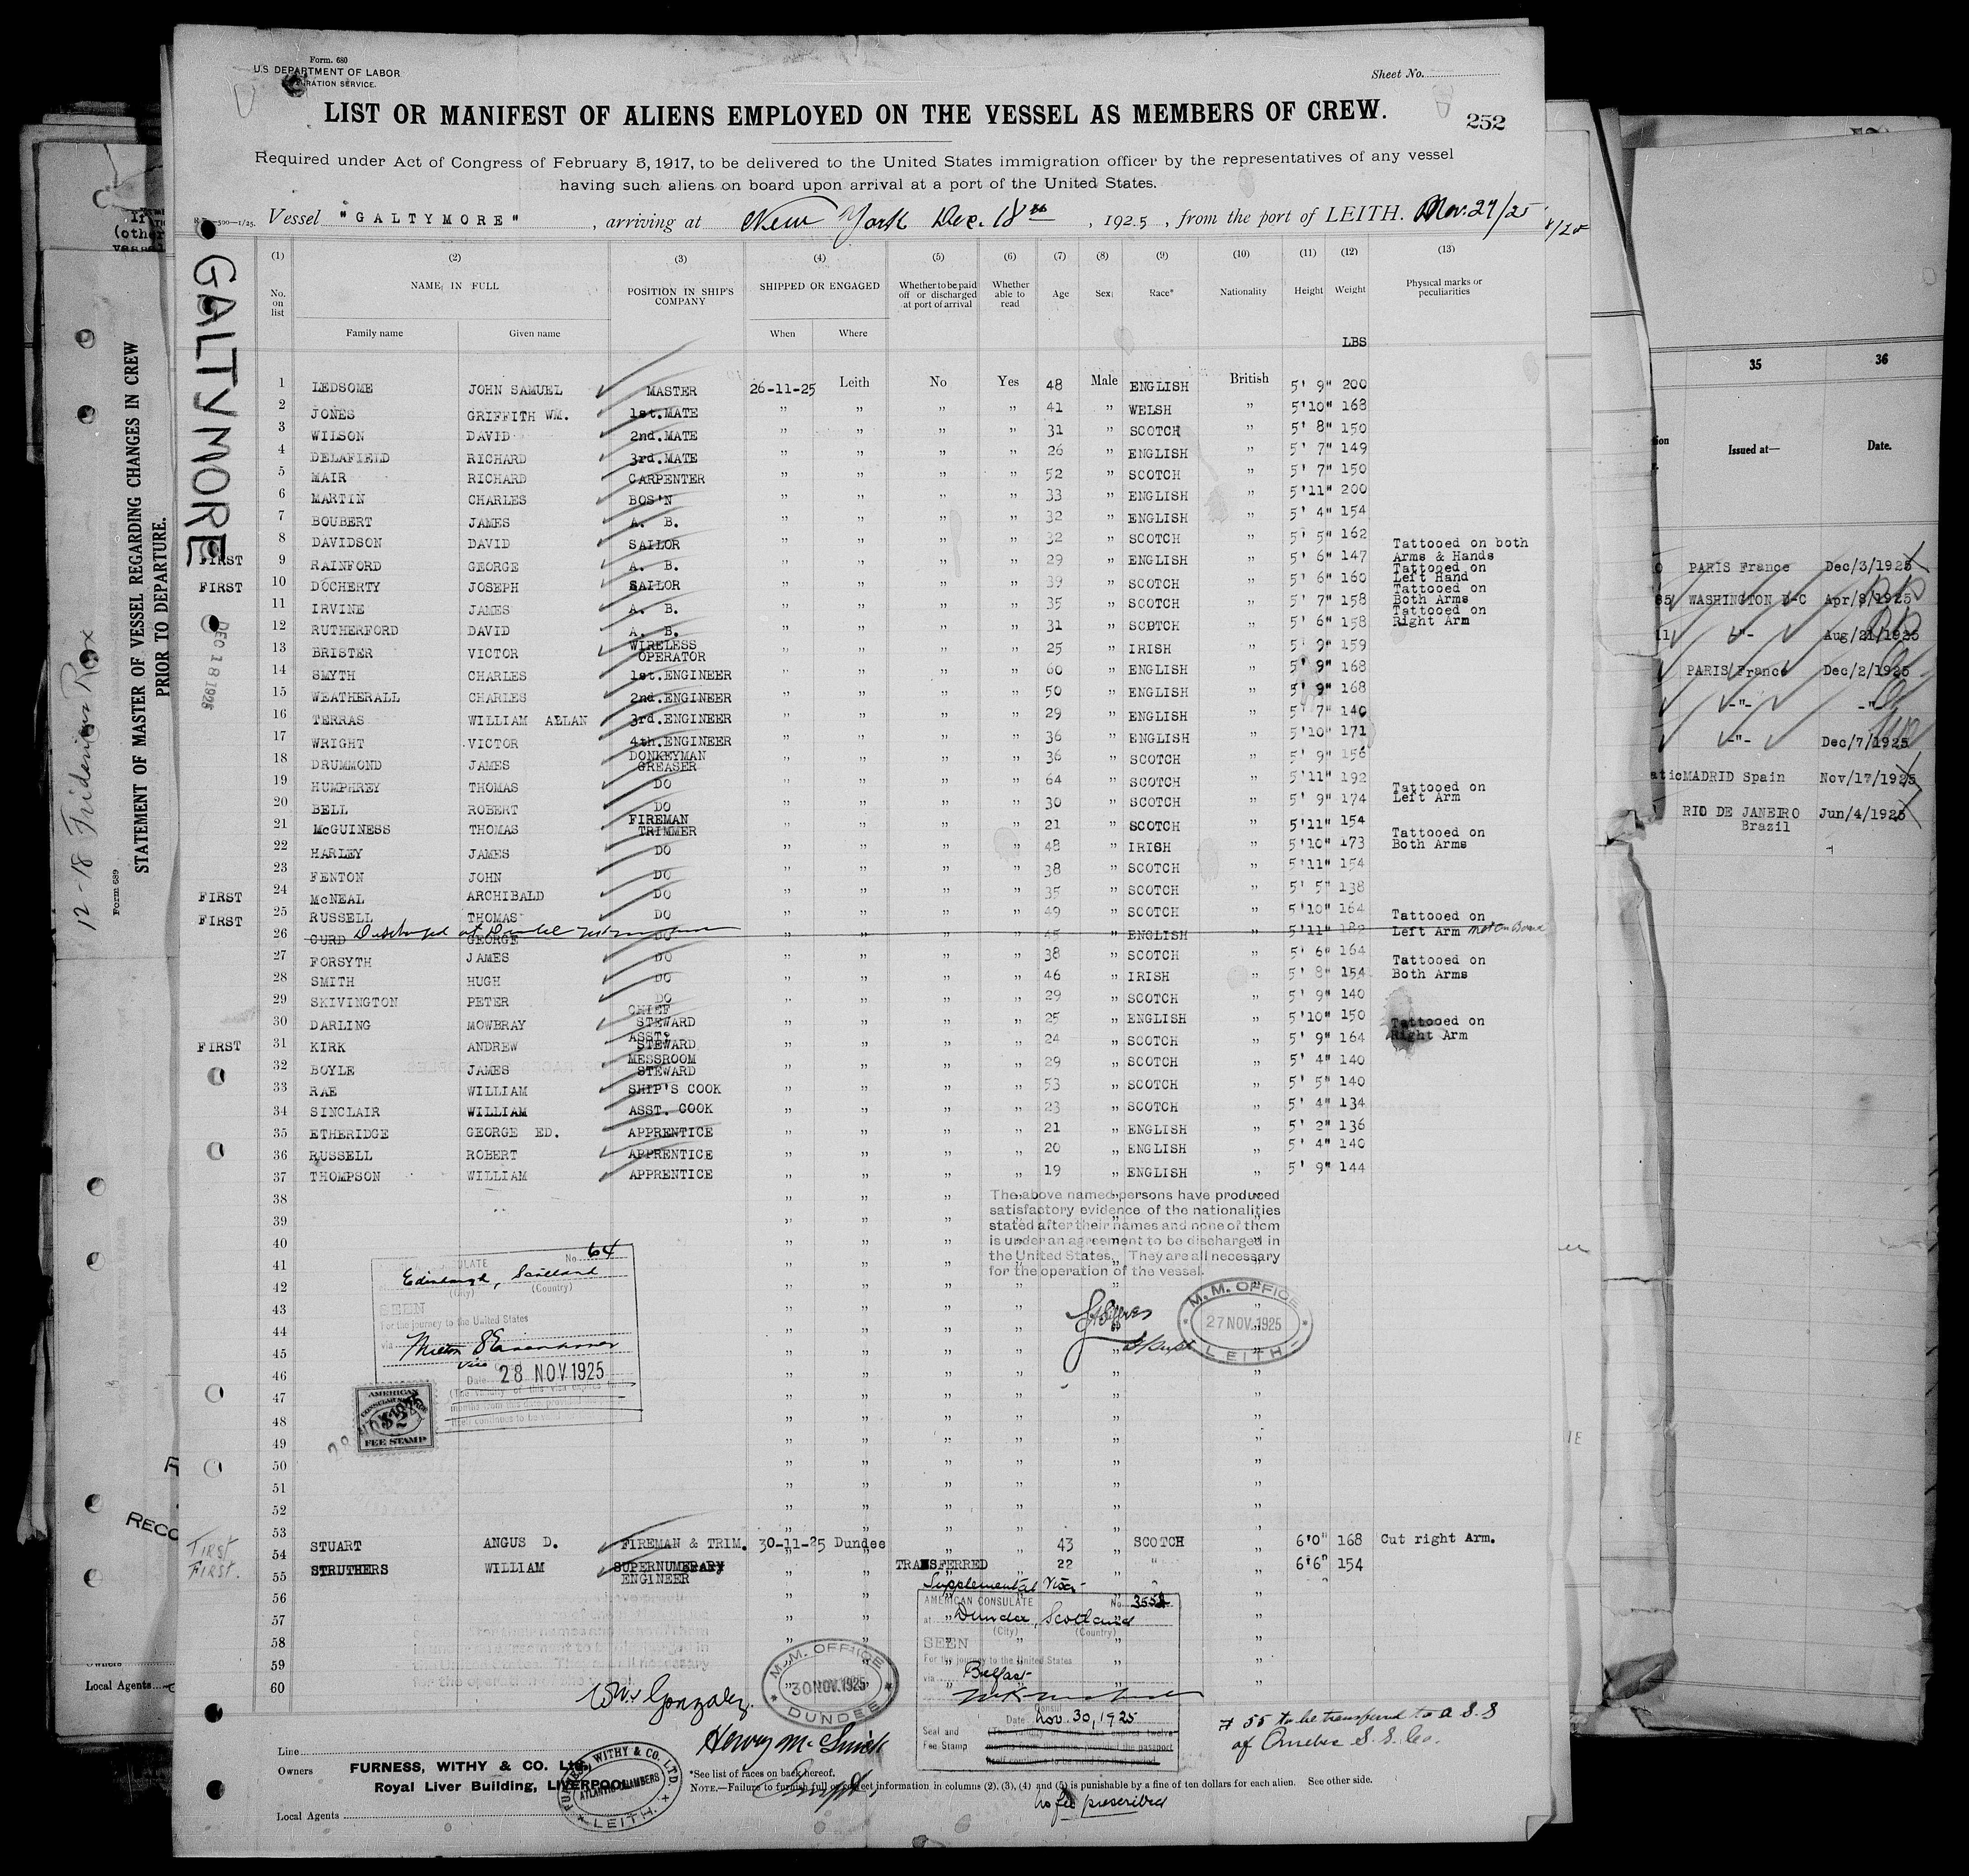 Form. 680
U.S DEPARTMENT OF LABOR
RATION SERVICE.
Sheet No.
LIST OR MANIFEST OF ALIENS EMPLOYED ON THE VESSEL AS MEMBERS OF CREW.
252
Required under Act of Congress of February 5, 1917, to be delivered to the United States immigration officer by the representatives of any vessel
having such aliens on board upon arrival at a port of the United States.
Vessel "GALTYMORE", arriving at New York Dec. 18th, 1925, from the port of LEITH. Nov. 27/25
GALTYMORE
DEC 18 1925
(1) (2) (3) (4) (5) (6) (7) (8) (9) (10) (11) (12) (13)
No. on list
NAME IN FULL
Family name
Given name
POSITION IN SHIP'S COMPANY
SHIPPED OR ENGAGED
When
Where
Whether to be paid off or discharged at port of arrival
Whether able to read
Age
Sex
Race*
Nationality
Height
Weight
Physical marks or peculiarities
LBS
1 LEDSOME JOHN SAMUEL MASTER 26-11-25 Leith No Yes 48 Male ENGLISH British 5' 9" 200
2 JONES GRIFFITH WM. 1st.MATE " " " " 41 " WELSH " 5'10" 168
3 WILSON DAVID 2nd.MATE " " " " 31 " SCOTCH " 5' 8" 150
4 DELAFIELD RICHARD 3rd.MATE " " " " 26 " ENGLISH " 5' 7" 149
5 MAIR RICHARD CARPENTER " " " " 52 " SCOTCH " 5' 7" 150
6 MARTIN CHARLES BOS'N " " " " 33 " ENGLISH " 5'11" 200
7 BOUBERT JAMES A. B. " " " " 32 " ENGLISH " 5' 4" 154
8 DAVIDSON DAVID SAILOR " " " " 32 " SCOTCH " 5' 5" 162 Tattooed on both Arms & Hands
FIRST 9 RAINFORD GEORGE A. B. " " " " 29 " ENGLISH " 5' 6" 147 Tattooed on Left Hand
FIRST 10 DOCHERTY JOSEPH SAILOR " " " " 39 " SCOTCH " 5' 6" 160 Tattooed on Both Arms
11 IRVINE JAMES A. B. " " " " 35 " SCOTCH " 5' 7" 158 Tattooed on Right Arm
12 RUTHERFORD DAVID A. B. " " " " 31 " SCOTCH " 5' 6" 158
13 BRISTER VICTOR WIRELESS OPERATOR " " " " 25 " IRISH " 5' 9" 159
14 SMYTH CHARLES 1st.ENGINEER " " " " 60 " ENGLISH " 5' 9" 168
15 WEATHERALL CHARLES 2nd.ENGINEER " " " " 50 " ENGLISH " 5' 9" 168
16 TERRAS WILLIAM ALLAN 3rd.ENGINEER " " " " 29 " ENGLISH " 5' 7" 140
17 WRIGHT VICTOR 4th.ENGINEER " " " " 36 " ENGLISH " 5'10" 171
18 DRUMMOND JAMES DONKEYMAN GREASER " " " " 36 " SCOTCH " 5' 9" 156
19 HUMPHREY THOMAS DO " " " " 64 " SCOTCH " 5'11" 192 Tattooed on Left Arm
20 BELL ROBERT DO " " " " 30 " SCOTCH " 5' 9" 174
21 McGUINESS THOMAS FIREMAN TRIMMER " " " " 21 " SCOTCH " 5'11" 154
22 HARLEY JAMES DO " " " " 48 " IRISH " 5'10" 173 Tattooed on Both Arms
23 FENTON JOHN DO " " " " 38 " SCOTCH " 5'11" 154
FIRST 24 McNEAL ARCHIBALD DO " " " " 35 " SCOTCH " 5' 5" 138
FIRST 25 RUSSELL THOMAS DO " " " " 49 " SCOTCH " 5'10" 164 Tattooed on
26 GURD GEORGE DO " " " " 45 " ENGLISH " 5'11" Left Arm not on Board
Discharged at Dundee
27 FORSYTH JAMES DO " " " " 38 " SCOTCH " 5' 6" 164 Tattooed on
28 SMITH HUGH DO " " " " 46 " IRISH " 5' 8" 154 Both Arms
29 SKIVINGTON PETER DO " " " " 29 " SCOTCH " 5' 9" 140
30 DARLING MOWBRAY CHIEF STEWARD " " " " 25 " ENGLISH " 5'10" 150 Tattooed on
FIRST 31 KIRK ANDREW ASST. STEWARD " " " " 24 " SCOTCH " 5' 9" 164 Right Arm
32 BOYLE JAMES MESSROOM STEWARD " " " " 29 " SCOTCH " 5' 4" 140
33 RAE WILLIAM SHIP'S COOK " " " " 53 " SCOTCH " 5' 5" 140
34 SINCLAIR WILLIAM ASST. COOK " " " " 23 " SCOTCH " 5' 4" 134
35 ETHERIDGE GEORGE ED. APPRENTICE " " " " 21 " ENGLISH " 5' 2" 136
36 RUSSELL ROBERT APPRENTICE " " " " 20 " ENGLISH " 5' 4" 140
37 THOMPSON WILLIAM APPRENTICE " " " " 19 " ENGLISH " 5' 9" 144
38
39
40
41
42
43
44
45
46
47
48
49
50
51
52
53
The above named persons have produced
satisfactory evidence of the nationalities
stated after their names and none of them
is under an agreement to be discharged in
the United States. They are all necessary
for the operation of the vessel.
M. M. OFFICE
27 NOV. 1925
LEITH
No. 64
Edinburgh, Scotland
(City) (Country)
SEEN
For the journey to the United States
via
Milton S Eisenhower
Vice
Date 28 NOV 1925
AMERICAN
CONSULAR SERVICE
$2
FEE STAMP
First 54 STUART ANGUS D. FIREMAN & TRIM. 30-11-25 Dundee " " 43 " SCOTCH " 6'0" 168 Cut right Arm.
First. 55 STRUTHERS WILLIAM SUPERNUMERARY ENGINEER TRANSFERRED 22 " " 6'6" 154
56
57
58
59
60
Supplemental Visa
AMERICAN CONSULATE No. 3552
at Dundee, Scotland
(City) (Country)
SEEN
For the journey to the United States
via Belfast
Consul
Date Nov. 30, 1925
Seal and
Fee Stamp
(The validity of this visa expires twelve
months from this date, provided the passport
itself continues to be valid for that period.
No fee prescribed
M. M. OFFICE
30 NOV. 1925
DUNDEE
Wm Gonzalez.
Henry Mc
Supt.
# 55 to be transferred to a S.S
of Quebec S.S. Co.
Line
Owners FURNESS, WITHY & CO. Ltd.,
Royal Liver Building, LIVERPOOL
Local Agents
FURNESS, WITHY & CO. LTD.
ATLANTIC CHAMBERS
LEITH.
*See list of races on back hereof.
NOTE.—Failure to furnish full or correct information in columns (2), (3), (4) and (5) is punishable by a fine of ten dollars for each alien. See other side.
STATEMENT OF MASTER OF VESSEL REGARDING CHANGES IN CREW
PRIOR TO DEPARTURE.
Form 689
Local Agents
35 36
Issued at— Date.
PARIS France Dec/3/1925
WASHINGTON D-C Apr/8/1925
-"- Aug/21/1925
PARIS France Dec/2/1925
-"- -"-
-"- Dec/7/1925
MADRID Spain Nov/17/1925
RIO DE JANEIRO Brazil Jun/4/1925